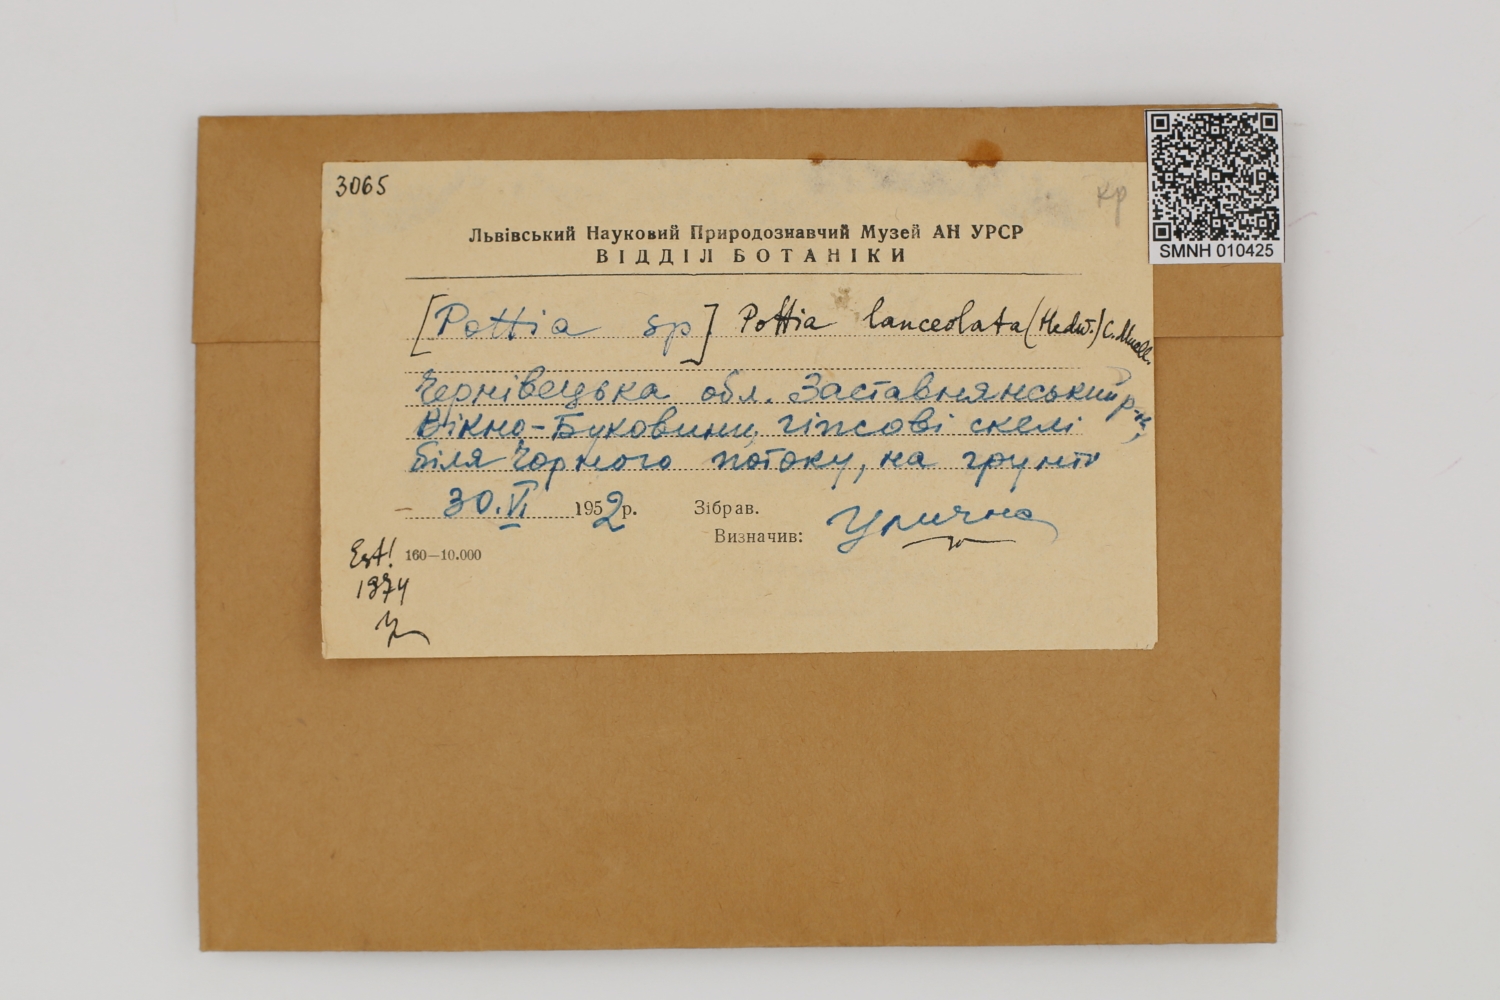 3065
кр
SMNH 010425
Львівський Науковий Природознавчий Музей АН УРСР
ВІДДІЛ БОТАНІКИ
[Pottia sp] Pottia lanceolata (Hedw.) C. Muell.
Чернівецька обл. Заставнянський р-н,
Вікно-Буковини, гіпсові скелі
біля Чорного потоку, на грунті
30.VI 1952 р. Зібрав.
Визначив:
Est! 160—10.000
1974